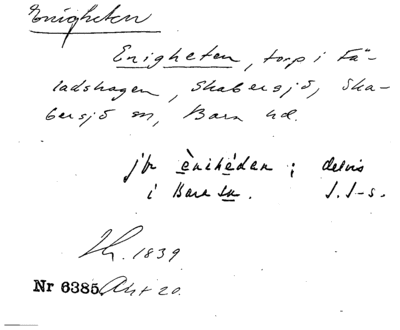 Enigheten
Enigheten, torp i Fä-
ladshagen, Skabersjö, Ska-
bersjö sn, Bara hd.
jfr ènihéden; delvis
i Bara sn. J.I-s.
1839
Nr 6385. Akt 20.